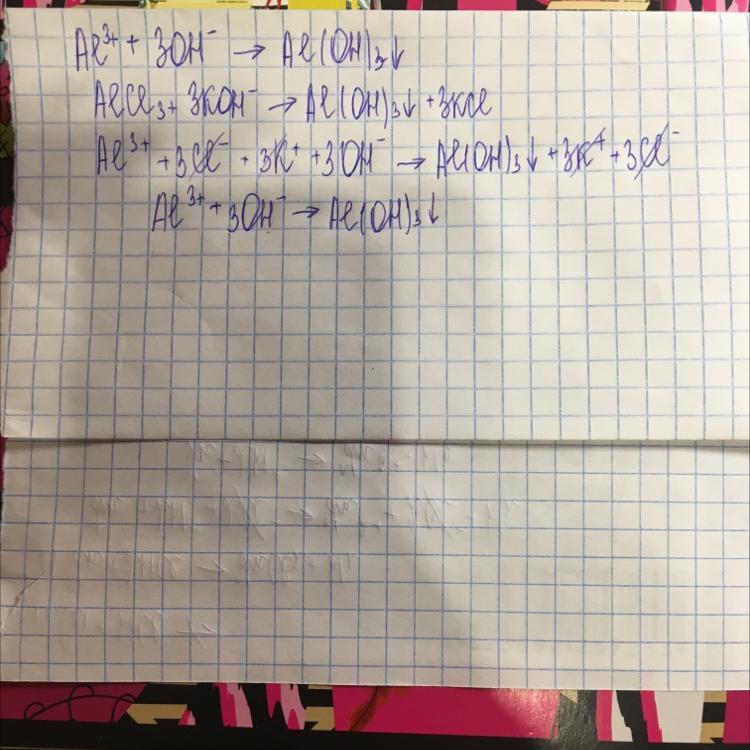 Al³⁺ + 3OH⁻ → Al(OH)₃↓
AlCl₃ + 3KOH⁻ → Al(OH)₃↓ + 3KCl
Al³⁺ + 3Cl⁻ + 3K⁺ + 3OH⁻ → Al(OH)₃↓ + 3K⁺ + 3Cl⁻
Al³⁺ + 3OH⁻ → Al(OH)₃↓